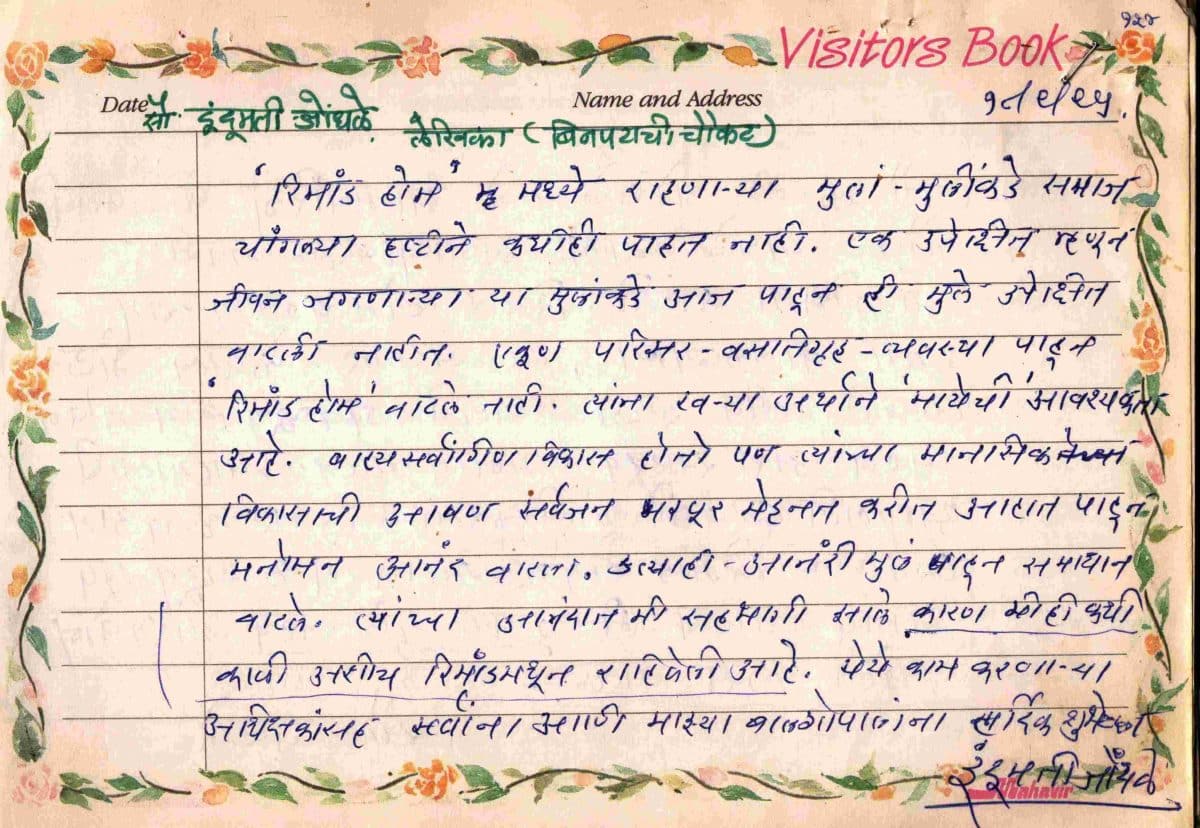 १२४
Visitors Book
Date
Name and Address
सौ. इंदूमती जोंधळे
लेखिका (बिनपटाची चौकट)
'रिमांड होम' मध्ये राहणाऱ्या मुलां-मुलींकडे समाज
चांगल्या दृष्टीने कधीही पाहत नाही. एक उपेक्षित म्हणून
जीवन जगणाऱ्या या मुलांकडे आज पाहून ही मुले उपेक्षित
वाटली नाहीत. एकूण परिसर-वसतिगृह-व्यवस्था पाहून
'रिमांड होम' वाटले नाही. त्यांना खऱ्या अर्थाने 'मायेची' आवश्यकता
आहे. बाह्य सर्वांगिण विकास होतो पण त्यांच्या मानसिकतेच्या
विकासाची आपण सर्वजन भरपूर मेहनत करीत आहात पाहून
मनोमन आनंद वाटला. उत्साही-आनंदी मुलं पाहून समाधान
वाटले. त्यांच्या आनंदात मी सहभागी झाले कारण मीही कधी
काळी अशीच रिमांडमधून राहिलेली आहे. येथे काम करणाऱ्या
अधिक्षकांसह सर्वांना आणि माझ्या बालगोपालांना हार्दिक शुभेच्छा
इंदुमती जोंधळे
Mahavir